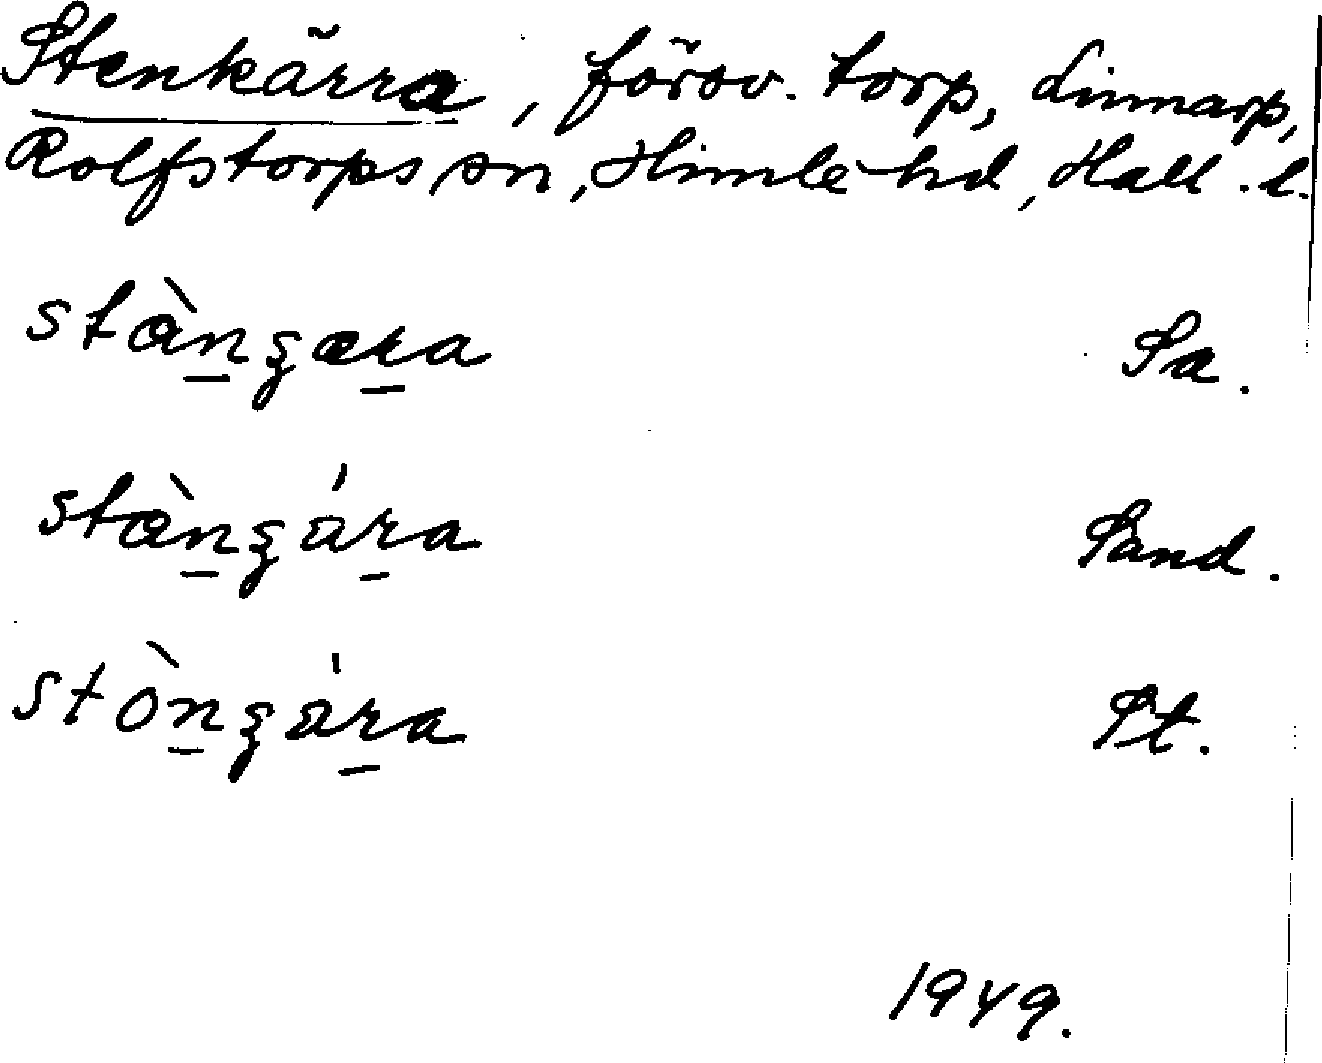 Stenkärra, försv. torp, Linnarp,
Rolfstorps sn, Himle hd, Hall. l.
stæ̀n̠ʒær̠a Sa.
stæ̀n̠ʒár̠a Sand.
stòn̠ʒár̠a St.
1949.